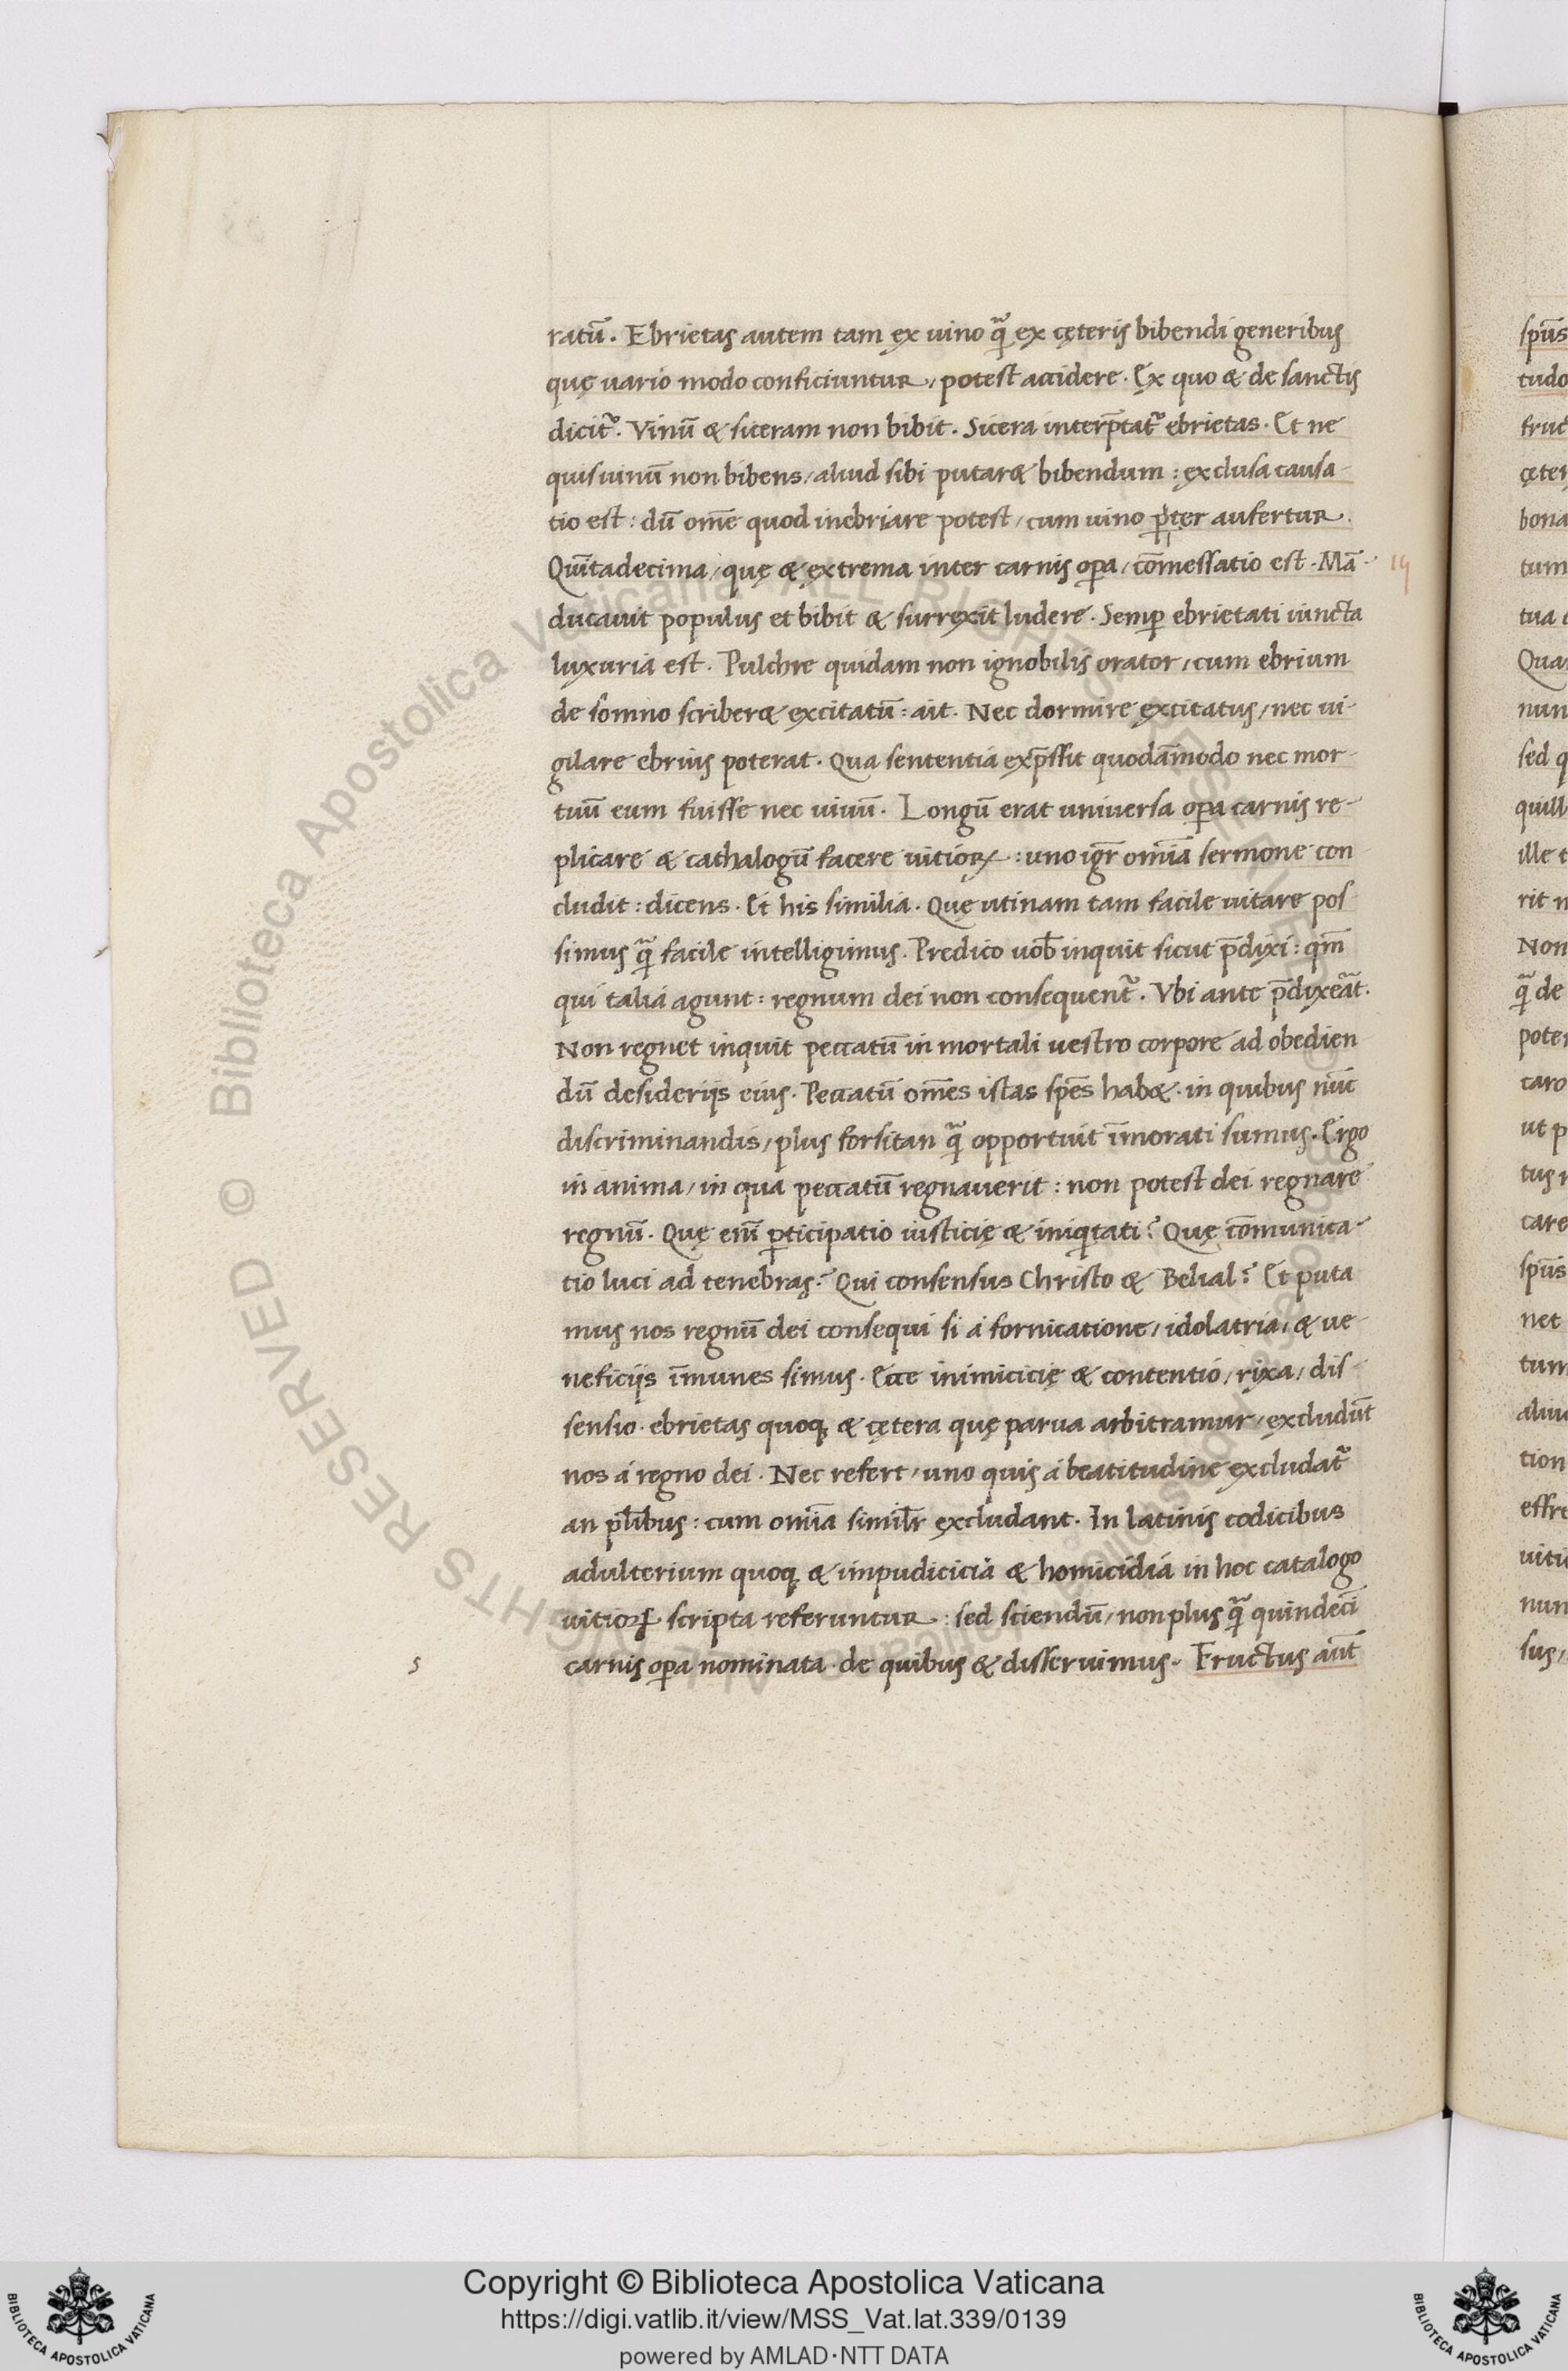 ratū. Ebrietas autem tam ex uino qᷓ ex cęteris bibendi generibus
quę uario modo conficiuntur, potest accidere. Ex quo & de sanctis
dicit᷑. Vinū & siceram non bibit. Sicera interp̄tat᷑ ebrietas. Et ne
quis uinū non bibens, aliud sibi putar& bibendum: exclusa causa-
tio est: dū om̄e quod inebriare potest, cum uino ꝑ̇ter aufertur.
Quītadecima, quę & extrema inter carnis oꝑa, cōmessatio est. Mā-
ducauit populus et bibit & surrexit ludere. Semꝑ ebrietati iuncta
luxuria est. Pulchre quidam non ignobilis orator, cum ebrium
de somno scriber& excitatū: ait. Nec dormire excitatus, nec ui-
gilare ebrius poterat. Qua sententia exp̄ssit quodāmodo nec mor-
tuū eum fuisse nec uiuū. Longū erat uniuersa oꝑa carnis re-
plicare & cathalogū facere uitioꝝ: uno igr̄ om̄ia sermone con
cludit: dicens. Et his similia. Quę utinam tam facile uitare pos
simus qᷓ facile intelligimus. Predico uob̄ inquit sicut p̄dixi: qm̄
qui talia agunt: regnum dei non consequent᷑. Vbi ante p̄dixeāt.
Non regnet inquit peccatū in mortali uestro corpore ad obedien
dū desiderijs eius. Peccatū om̄es istas sp̄es hab&. in quibus nūc
discriminandis, plus forsitan qᷓ opportuit īmorati sumus. Ergo
in anima, in qua peccatū regnauerit: non potest dei regnare
regnū. Quę enī ꝑticipatio iusticię & iniqͥtati? Quę cōmunica-
tio luci ad tenebras? Qui consensus Christo & Belial? Et puta
mus nos regnū dei consequi si a fornicatione, idolatria, & ue-
neficijs īmunes simus. Ecce inimicicię & contentio, rixa, dis-
sensio. ebrietas quoqꝫ & cętera quę parua arbitramur, excludūt
nos a regno dei. Nec refert, uno quis a beatitudine excludat᷑
an pl̄ibus: cum om̄ia simil̄r excludant. In latinis codicibus
adulterium quoqꝫ & impudicicia & homicidia in hoc catalogo
uitioꝝ scripta referuntur: sed sciendū, non plus qᷓ quindecī
carnis oꝑa nominata. de quibus & disseruimus. Fructus aūt
5
spūs
tudo
fruc
çeter
bona
tum
tua
Qua
nun
sed q
quill
ille t
rit n
Non
qᷓ de
poter
caro
ut p
tus
care
spūs
net
tum
aliu
tion
effre
uiti
nun
sus,
© Biblioteca Apostolica Vaticana ALL RIGHTS RESERVED
Copyright © Biblioteca Apostolica Vaticana
https://digi.vatlib.it/view/MSS_Vat.lat.339/0139
powered by AMLAD·NTT DATA
BIBLIOTECA APOSTOLICA VATICANA
BIBLIOTECA APOSTOLICA VATICANA